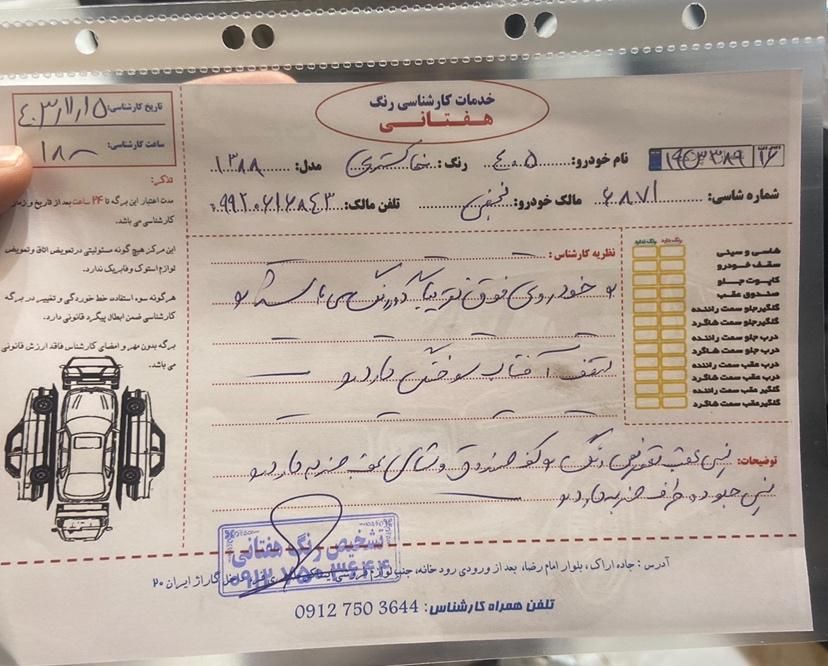 خدمات کارشناسی رنگ
هفتانی
تاریخ کارشناسی: ۴۰۳/۱۱/۱۵
ساعت کارشناسی: ۱۸
نام خودرو: ۴۰۵ رنگ: خاکستری مدل: ۱۳۸۸
شماره شاسی: ۶۸۷۱ مالک خودرو: تلفن مالک: ۰۹۹۲۰۶۱۶۸۴۳
تذکر:
مدت اعتبار این برگه تا ۲۴ ساعت بعد از تاریخ و زمان
کارشناسی می باشد.
این مرکز هیچ گونه مسئولیتی در تعویض اتاق و تعویض
لوازم استوک و فابریک ندارد.
هرگونه سوء استفاده خط خوردگی و تغییر در برگه
کارشناسی ضمن ابطال پیگرد قانونی دارد.
برگه بدون مهر و امضای کارشناس فاقد ارزش قانونی
می باشد.
نظریه کارشناس:
خودروی فوق دور رنگ می باشد
سقف آفتاب سوختگی دارد
رنگ دارد رنگ ندارد
شاسی و سینی
سقف خودرو
کاپوت جلو
صندوق عقب
گلگیر جلو سمت راننده
گلگیر جلو سمت شاگرد
درب جلو سمت راننده
درب جلو سمت شاگرد
درب عقب سمت راننده
درب عقب سمت شاگرد
گلگیر عقب سمت راننده
گلگیر عقب سمت شاگرد
توضیحات: عقب رنگ و کف صندوق و شاسی عقب ضربه دارد
جلو دو طرف ضربه دارد
تشخیص رنگ هفتانی
۰۹۱۲ ۷۵۰ ۳۶۴۴
آدرس: جاده اراک، بلوار امام رضا، بعد از ورودی رودخانه، جنب لوازم فروشی گاراژ ایران ۲۰
تلفن همراه کارشناس: 0912 750 3644